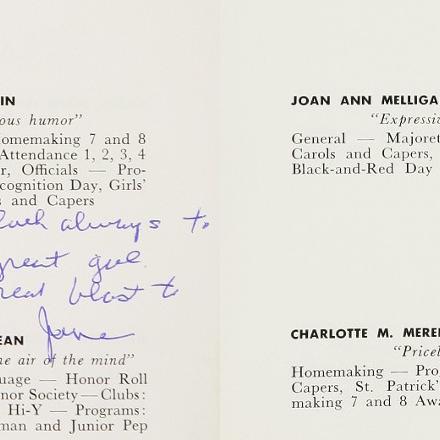 IN
ous humor"
omemaking 7 and 8
Attendance 1, 2, 3, 4
r, Officials — Pro-
cognition Day, Girls'
s and Capers
luck always to
great gal.
real blast to
Jane
EAN
ne air of the mind"
uage — Honor Roll
nor Society — Clubs:
Hi-Y — Programs:
man and Junior Pep
JOAN ANN MELLIGA
"Expressi
General — Majoret
Carols and Capers,
Black-and-Red Day
CHARLOTTE M. MERE
"Pricel
Homemaking — Pro
Capers, St. Patrick'
making 7 and 8 Awa